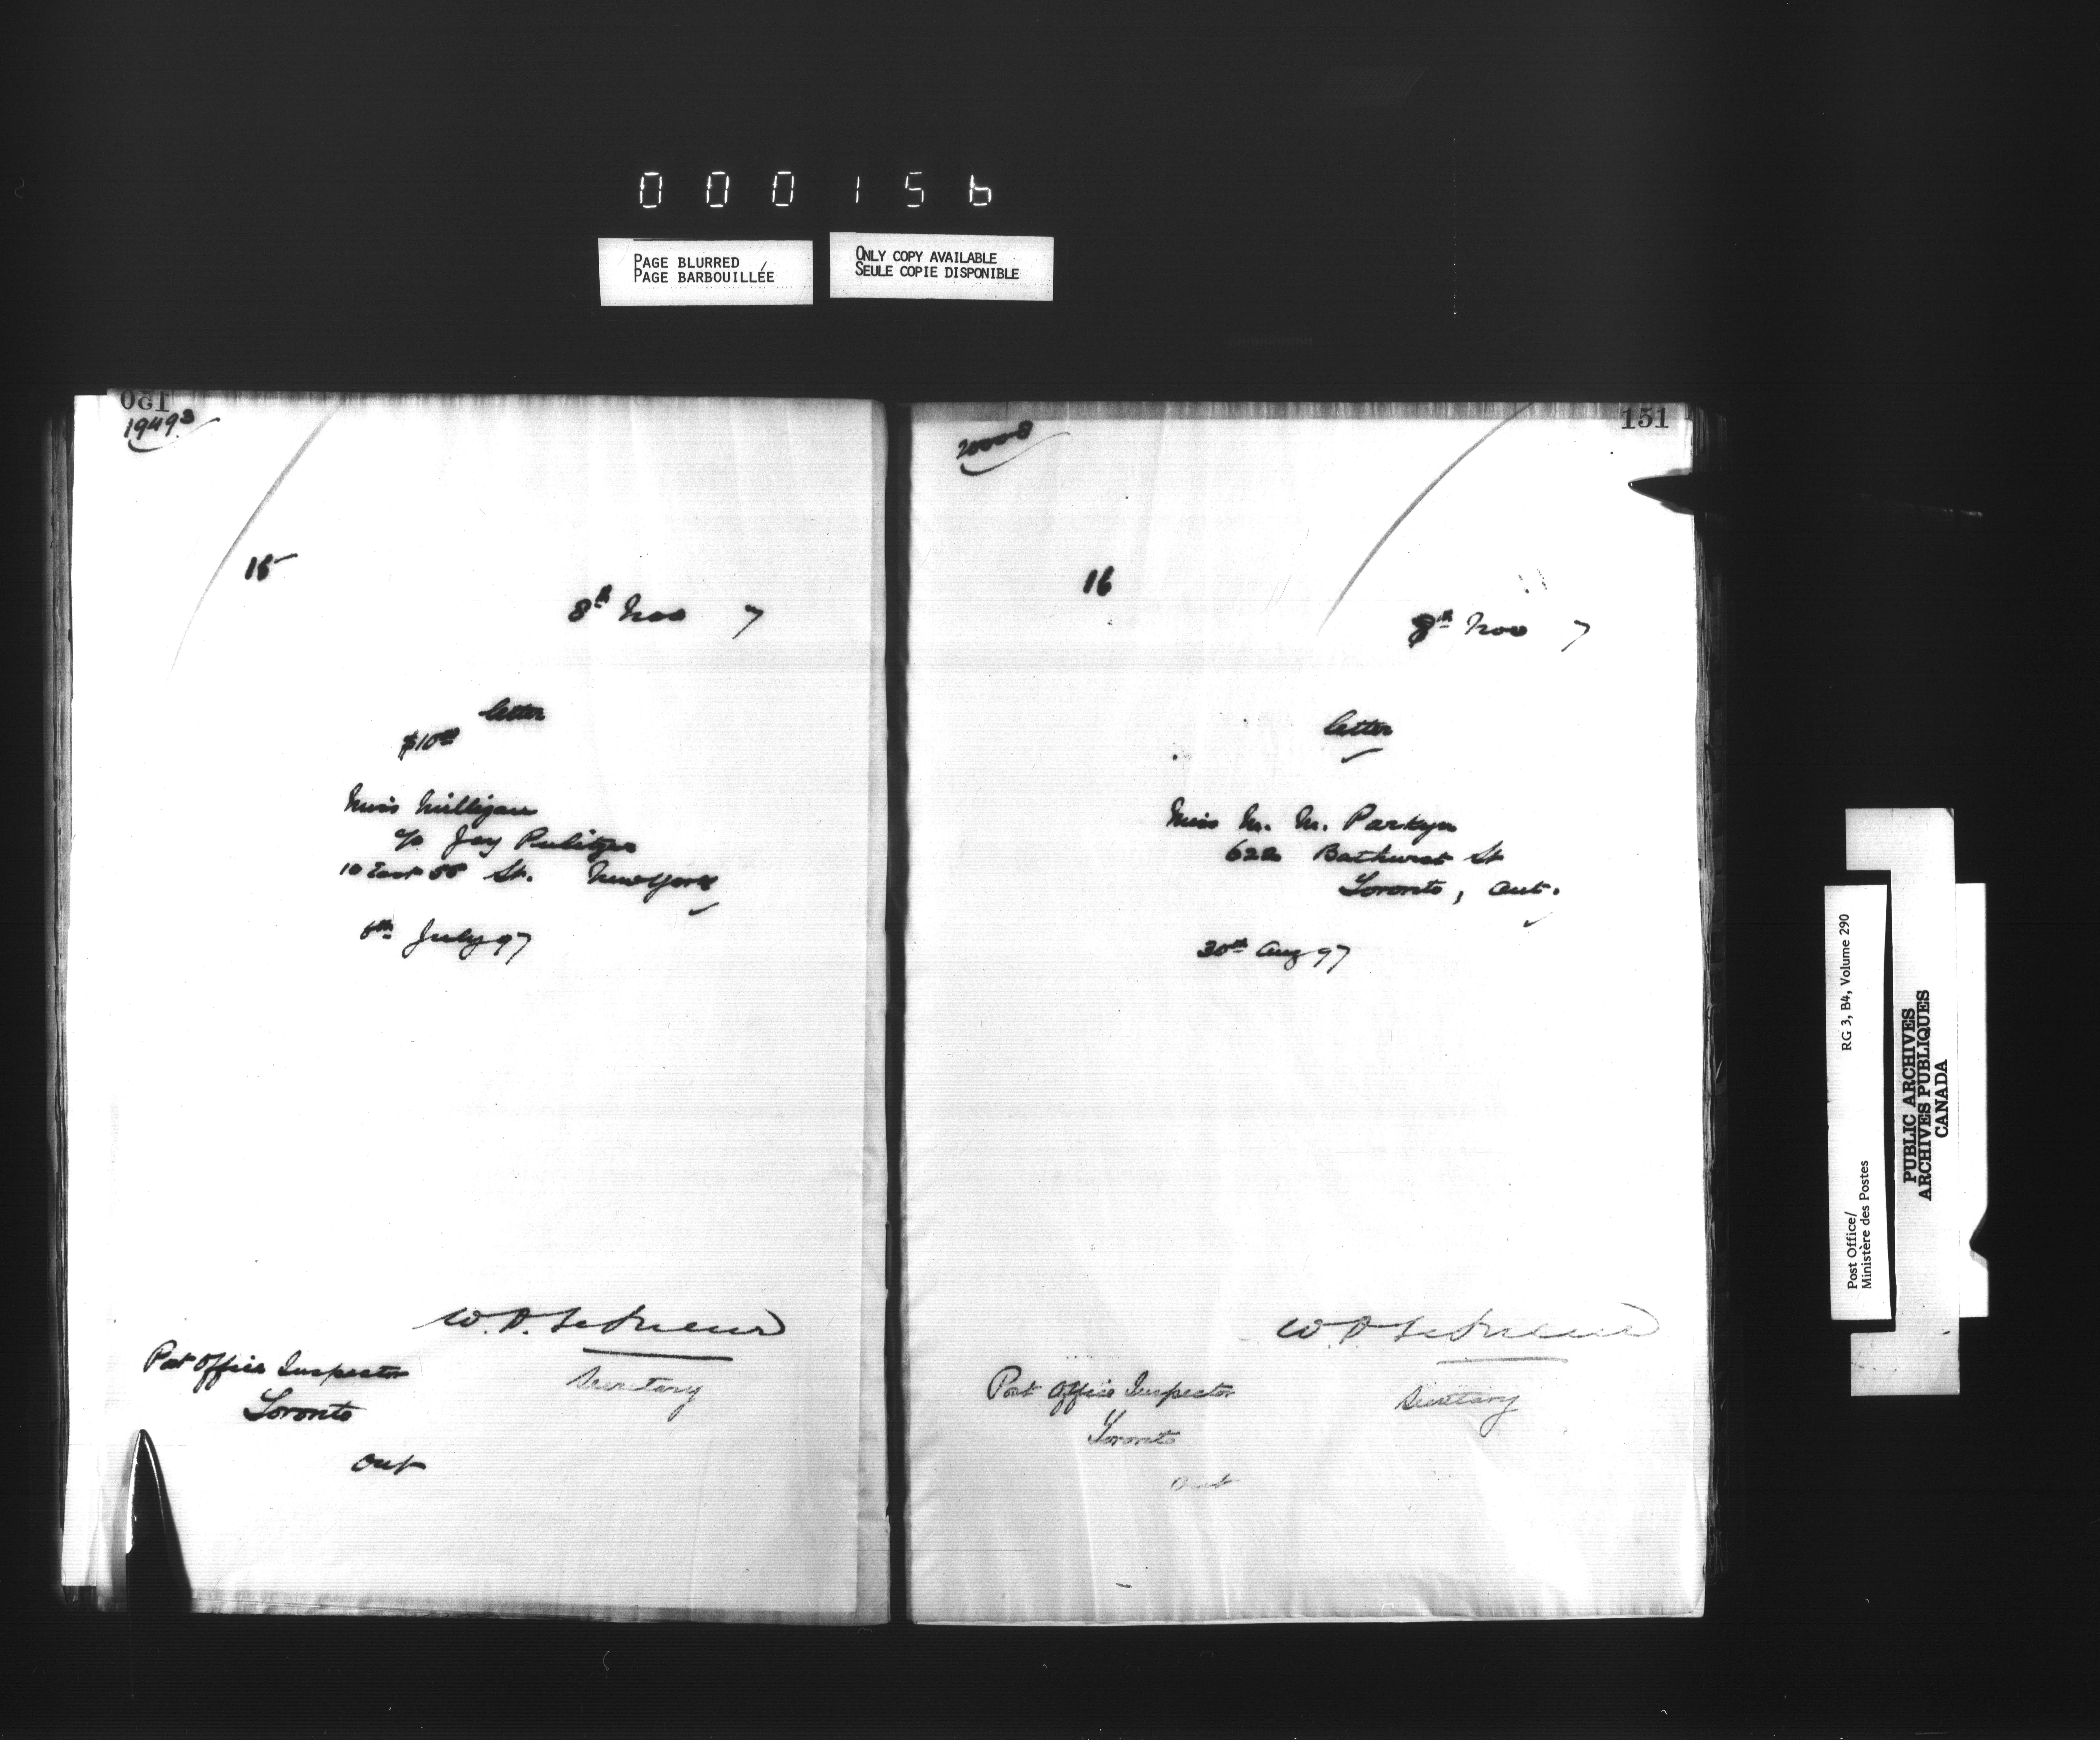 000156
PAGE BLURRED
PAGE BARBOUILLÉE
ONLY COPY AVAILABLE
SEULE COPIE DISPONIBLE
150
19493
15
8th Nov 7
letter
$10.00
Miss Milligan
c/o Jay Pulitzer
10 East 55 St. New York
6th July 97
W.D. LeSueur
Secretary
Post Office Inspector
Toronto
Ont
151
16
8th Nov 7
letter
Miss M. M. Parkyn
622 Bathurst St
Toronto, Ont.
30th Aug 97
W D LeSueur
Secretary
Post Office Inspector
Toronto
Ont
Post Office/ RG 3, B4, Volume 290
Ministère des Postes
PUBLIC ARCHIVES
ARCHIVES PUBLIQUES
CANADA